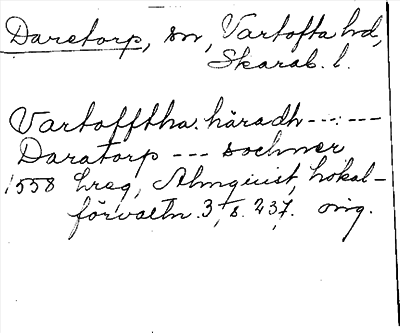 Daretorp, sn, Vartofta hd,
Skarab. l.
Vartofftha häradh --- : ---
Daratorp --- sochner
1558 hreg, Almquist, Lokal-
förvaltn. 3, s. 237. orig.